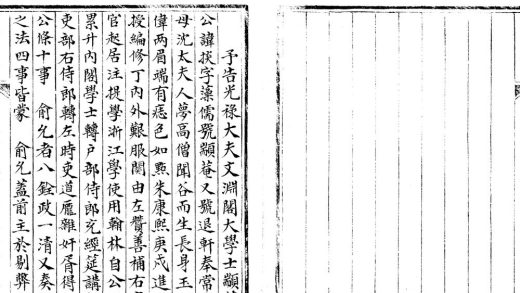 予告光祿大夫文淵閣大學士顓
公諱掞字藻儒號顓菴又號退軒奉常
母沈太夫人夢高僧聞谷而生長身玉
偉兩眉端有痣色如㸃朱康熙庚戌進
授編修丁內外艱服闋由左贊善補右
官起居注提學浙江學使用翰林自公
累升內閣學士轉戶部侍郎充經筵講
吏部右侍郎轉左時吏道龐雜奸胥得
公條十事　俞允者八銓政一清又奏
之法四事皆蒙　俞允蓋前主於剔弊